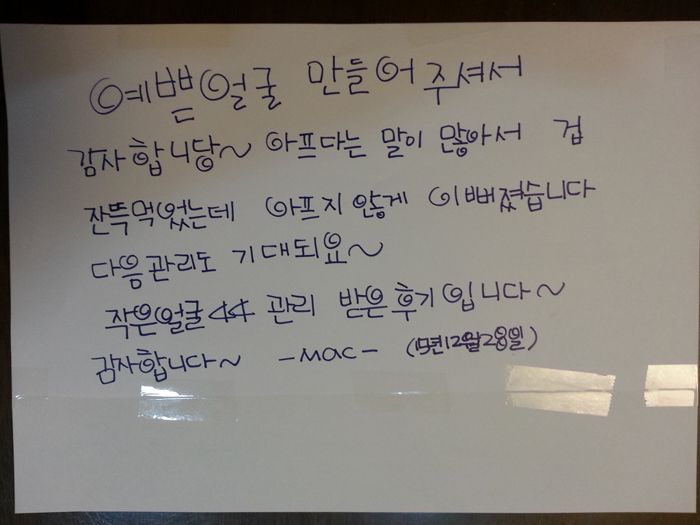 예쁜얼굴 만들어주셔서
감사합니당~ 아프다는 말이 많아서 겁
잔뜩먹었는데 아프지않게 이뻐졌습니다
다음관리도 기대되요~
작은얼굴44 관리 받은후기입니다~
감사합니다~ -MAC- (15년12월28일)